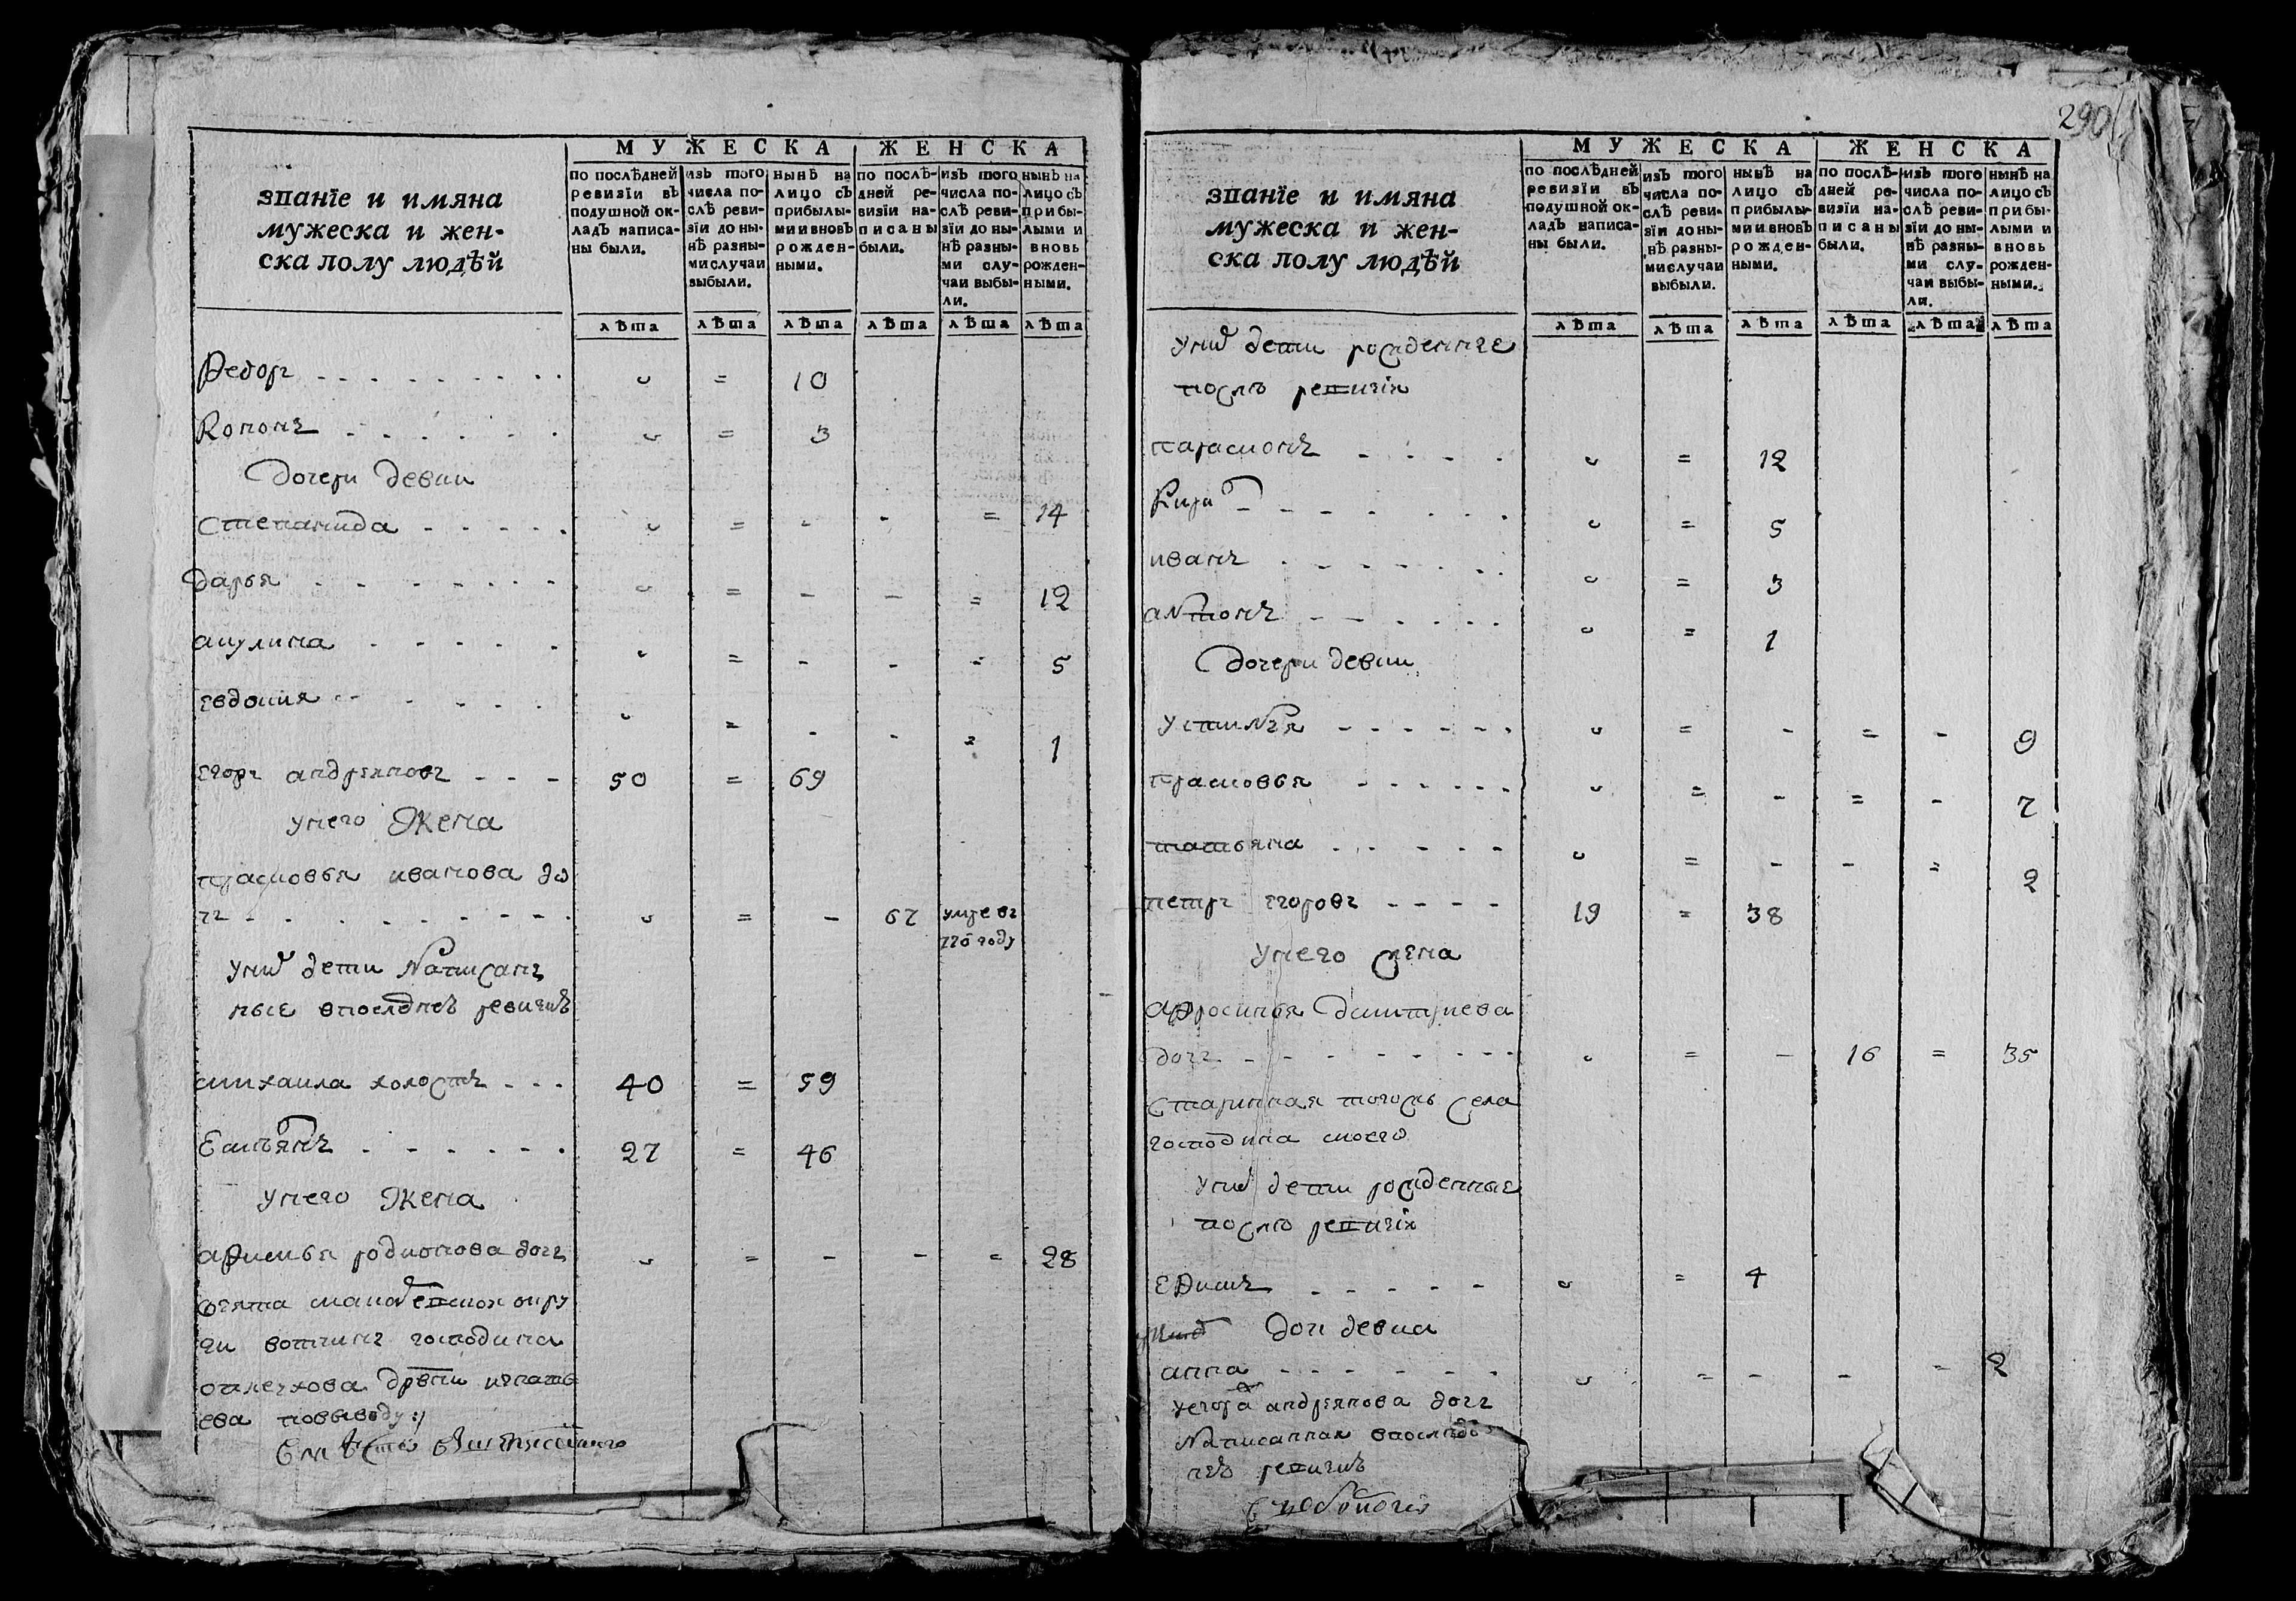 290
МУЖЕСКА
ЖЕНСКА
званіе и имяна
мужеска и жен-
ска полу людѣй
по послѣдней
ревизіи въ
подушной ок-
ладъ написа-
ны были.
изъ того
числа по-
слѣ реви-
зіи до ны-
нѣ разны-
ми случаи
выбыли.
нынѣ на
лицо съ
прибылы-
ми и вновь
рожден-
ными.
по послѣ-
дней ре-
визіи на-
писаны
были.
изъ того
числа по-
слѣ реви-
зіи до ны-
нѣ разны-
ми слу-
чаи выбы-
ли.
нынѣ на
лицо съ
прибы-
лыми и
вновь
рожден-
ными.
лѣта лѣта лѣта лѣта лѣта лѣта
Федоръ 10
Кононъ 3
дочери девки
степанида 14
дарья 12
акулина 5
евдокия 1
егоръ андреяновъ 50 = 69
унего жена
прасковья иванова до
чь 67 умре въ
776 году
уних дети написанъ
ные впоследней ревизиѣ
михаила холостъ 40 = 59
Емѣльянъ 27 = 46
унего жена
афимья родионова дочь 28
взята
вотчины господина
деревни игнать
ева повыводу
МУЖЕСКА
ЖЕНСКА
званіе и имяна
мужеска и жен-
ска полу людѣй
по послѣдней
ревизіи въ
подушной ок-
ладъ написа-
ны были.
изъ того
числа по-
слѣ реви-
зіи до ны-
нѣ разны-
ми случаи
выбыли.
нынѣ на
лицо съ
прибылы-
ми и вновь
рожден-
ными.
по послѣ-
дней ре-
визіи на-
писаны
были.
изъ того
числа по-
слѣ реви-
зіи до ны-
нѣ разны-
ми слу-
чаи выбы-
ли.
нынѣ на
лицо съ
прибы-
лыми и
вновь
рожден-
ными.
лѣта лѣта лѣта лѣта лѣта лѣта
уних дети рожденные
послѣ ревизіи
парамонъ 12
5
иванъ 3
антонъ 1
дочери девки
устинья 9
прасковья 7
татьяна 2
петръ егоровъ 19 = 38
унего жена
афросинья дмитриева
дочь 16 = 35
старинная тогожъ села
господина моего
уних дети рожденные
послѣ ревизіи
ефимъ 4
дочь девка
анна 2
уегора андреянова дочь
написанная впослед
ней ревизиѣ